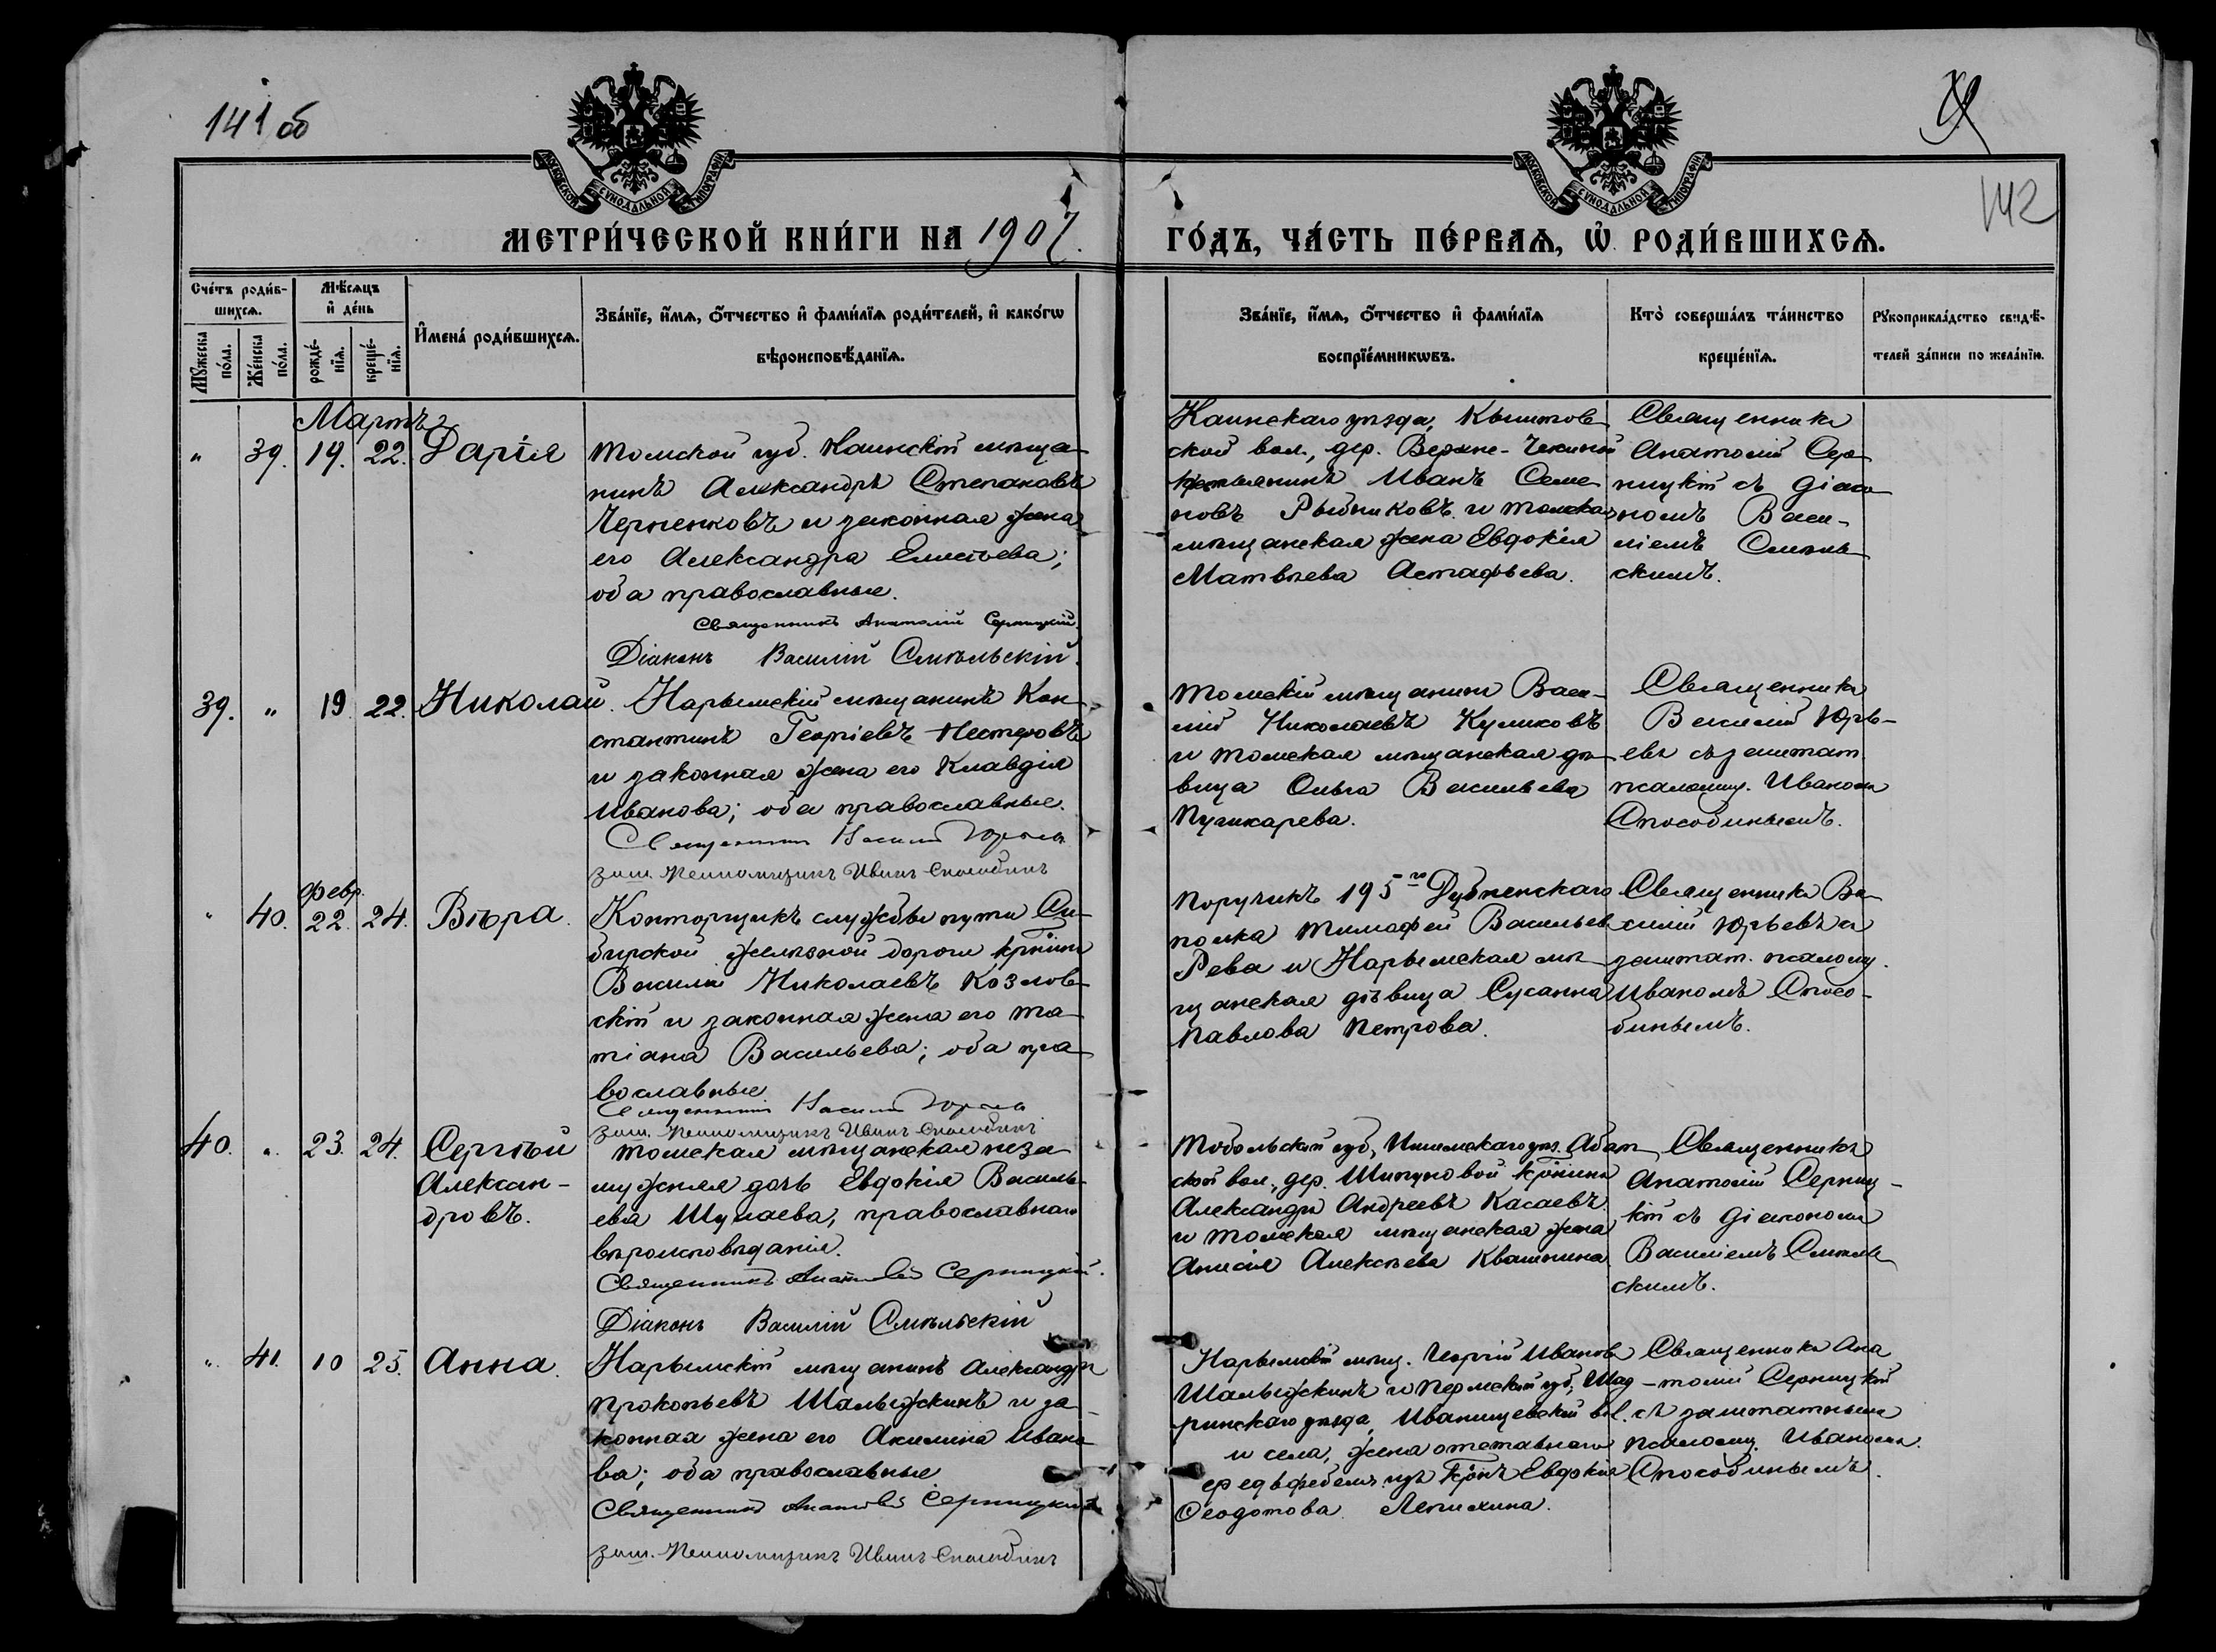 141 об
142
МОСКОВСКОЙ СѴНОДАЛЬНОЙ ТИПОГРАФІИ
МОСКОВСКОЙ СѴНОДАЛЬНОЙ ТИПОГРАФІИ
МЕТРИ́ЧЕСКОЙ КНИ́ГИ НА 1907. ГО́ДЪ, ЧА́СТЬ ПЕ́РВАѦ, Ѡ҆ РОДИ́ВШИХСѦ.
Сче́тъ роди́в-
шихсѧ.
Мꙋжеска по́ла.
Же́нска по́ла.
Мѣ́сѧцъ
и҆ де́нь
рожде́-
нїѧ.
креще́-
нїѧ.
И҆мена́ роди́вшихсѧ.
Зва́нїе, и҆́мѧ, ѻ҆́тчество и҆ фами́лїѧ роди́телей, и҆ како́гѡ
вѣроисповѣ́данїѧ.
Зва́нїе, и҆́мѧ, ѻ҆́тчество и҆ фами́лїѧ
воспрїе́мникѡвъ.
Кто̀ соверша́лъ та́инство
креще́нїѧ.
Рꙋкоприкла́дство свидѣ́-
телей за́писи по жела́нїю.
Мартъ
" 39. 19. 22. Дарія
Томской губ. Каинскій мѣща-
нинъ Александръ Степановъ
Черненковъ и законная жена
его Александра Елисѣева;
оба православные.
Священникъ Анатолій Серницкій.
Діаконъ Василій Смѣльскій.
Каинскаго уѣзда, Кыштов-
ской вол., дер. Верхне-Чекиной
крестьянинъ Иванъ Семе-
новъ Рыбниковъ и томская
мѣщанская жена Евдокія
Матвѣева Астафьева.
Священникъ
Анатолій Сер-
ницкій съ діако-
номъ Васи-
ліемъ Смѣль-
скимъ.
39. " 19 22. Николай.
Нарымскій мѣщанинъ Кон-
стантинъ Георгіевъ Нестеровъ
и законная жена его Клавдія
Иванова; оба православные.
Священникъ Василій Юрьевъ
заш. Псаломщикъ Иванъ Способинъ
Томскій мѣщанинъ Васи-
лій Николаевъ Куликовъ
и томская мѣщанская дѣ-
вица Ольга Васильева
Пушкарева.
Священникъ
Василій Юрь-
евъ съ заштат.
псаломщ. Иваномъ
Способинымъ.
Февр.
" 40. 22. 24. Вѣра.
Конторщикъ службы пути Си-
бирской желѣзной дороги кр̃нинъ
Василій Николаевъ Козлов-
скій и законная жена его Та-
тіана Васильева; оба пра-
вославные
Священникъ Василій Юрьевъ
заш. Псаломщикъ Иванъ Способинъ
Поручикъ 195го Дубненскаго
полка Тимофей Васильев
Рева и Нарымская мѣ-
щанская дѣвица Сусанна
Павлова Петрова.
Священникъ Ва-
силій Юрьевъ съ
заштат. псаломщ.
Иваномъ Спосо-
бинымъ.
40. " 23. 24. Сергѣй
Алексан-
дровъ.
Томская мѣщанская неза-
мужняя дочь Евдокія Василь-
ева Шумаева, православнаго
вѣроисповѣданія.
Священникъ Анатолій Серницкій.
Діаконъ Василій Смѣльскій
Тобольской губ., Ишимскаго уѣз. Абат-
ской вол., дер. Шипуновой кр̃нинъ
Александръ Андреевъ Касаевъ
и томская мѣщанская жена
Анисія Алексѣева Квашнина.
Священникъ
Анатолій Серниц-
кій съ діакономъ
Василіемъ Смѣль-
скимъ.
" 41. 10 25. Анна.
Нарымскій мѣщанинъ Александръ
Прокопьевъ Шалыжкинъ и за-
конная жена его Акилина Ивано-
ва; оба православные
Священникъ Анатолій Серницкій
заш. Псаломщикъ Иванъ Способинъ
Нарымскій мѣщ. Георгій Ивановъ
Шалыжкинъ и Пермской губ., Шад-
ринскаго уѣзда, Иванищевской вол.
и села, жена отставного
фельдфебеля изъ кр̃нъ Евдокія
Ѳеодотова Лепихина.
Священникъ Ана-
толій Серницкій
съ заштатнымъ
псаломщ. Иваномъ
Способинымъ.